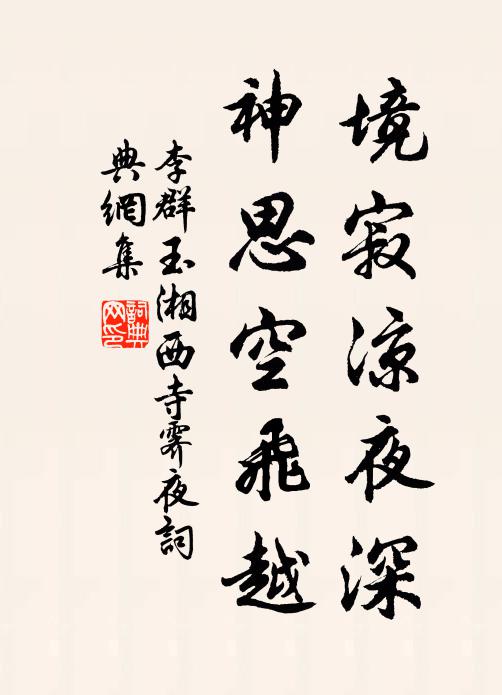 境寂涼夜深
神思空飛越
李群玉湘西寺霽夜詞
典網集
詞典
网印